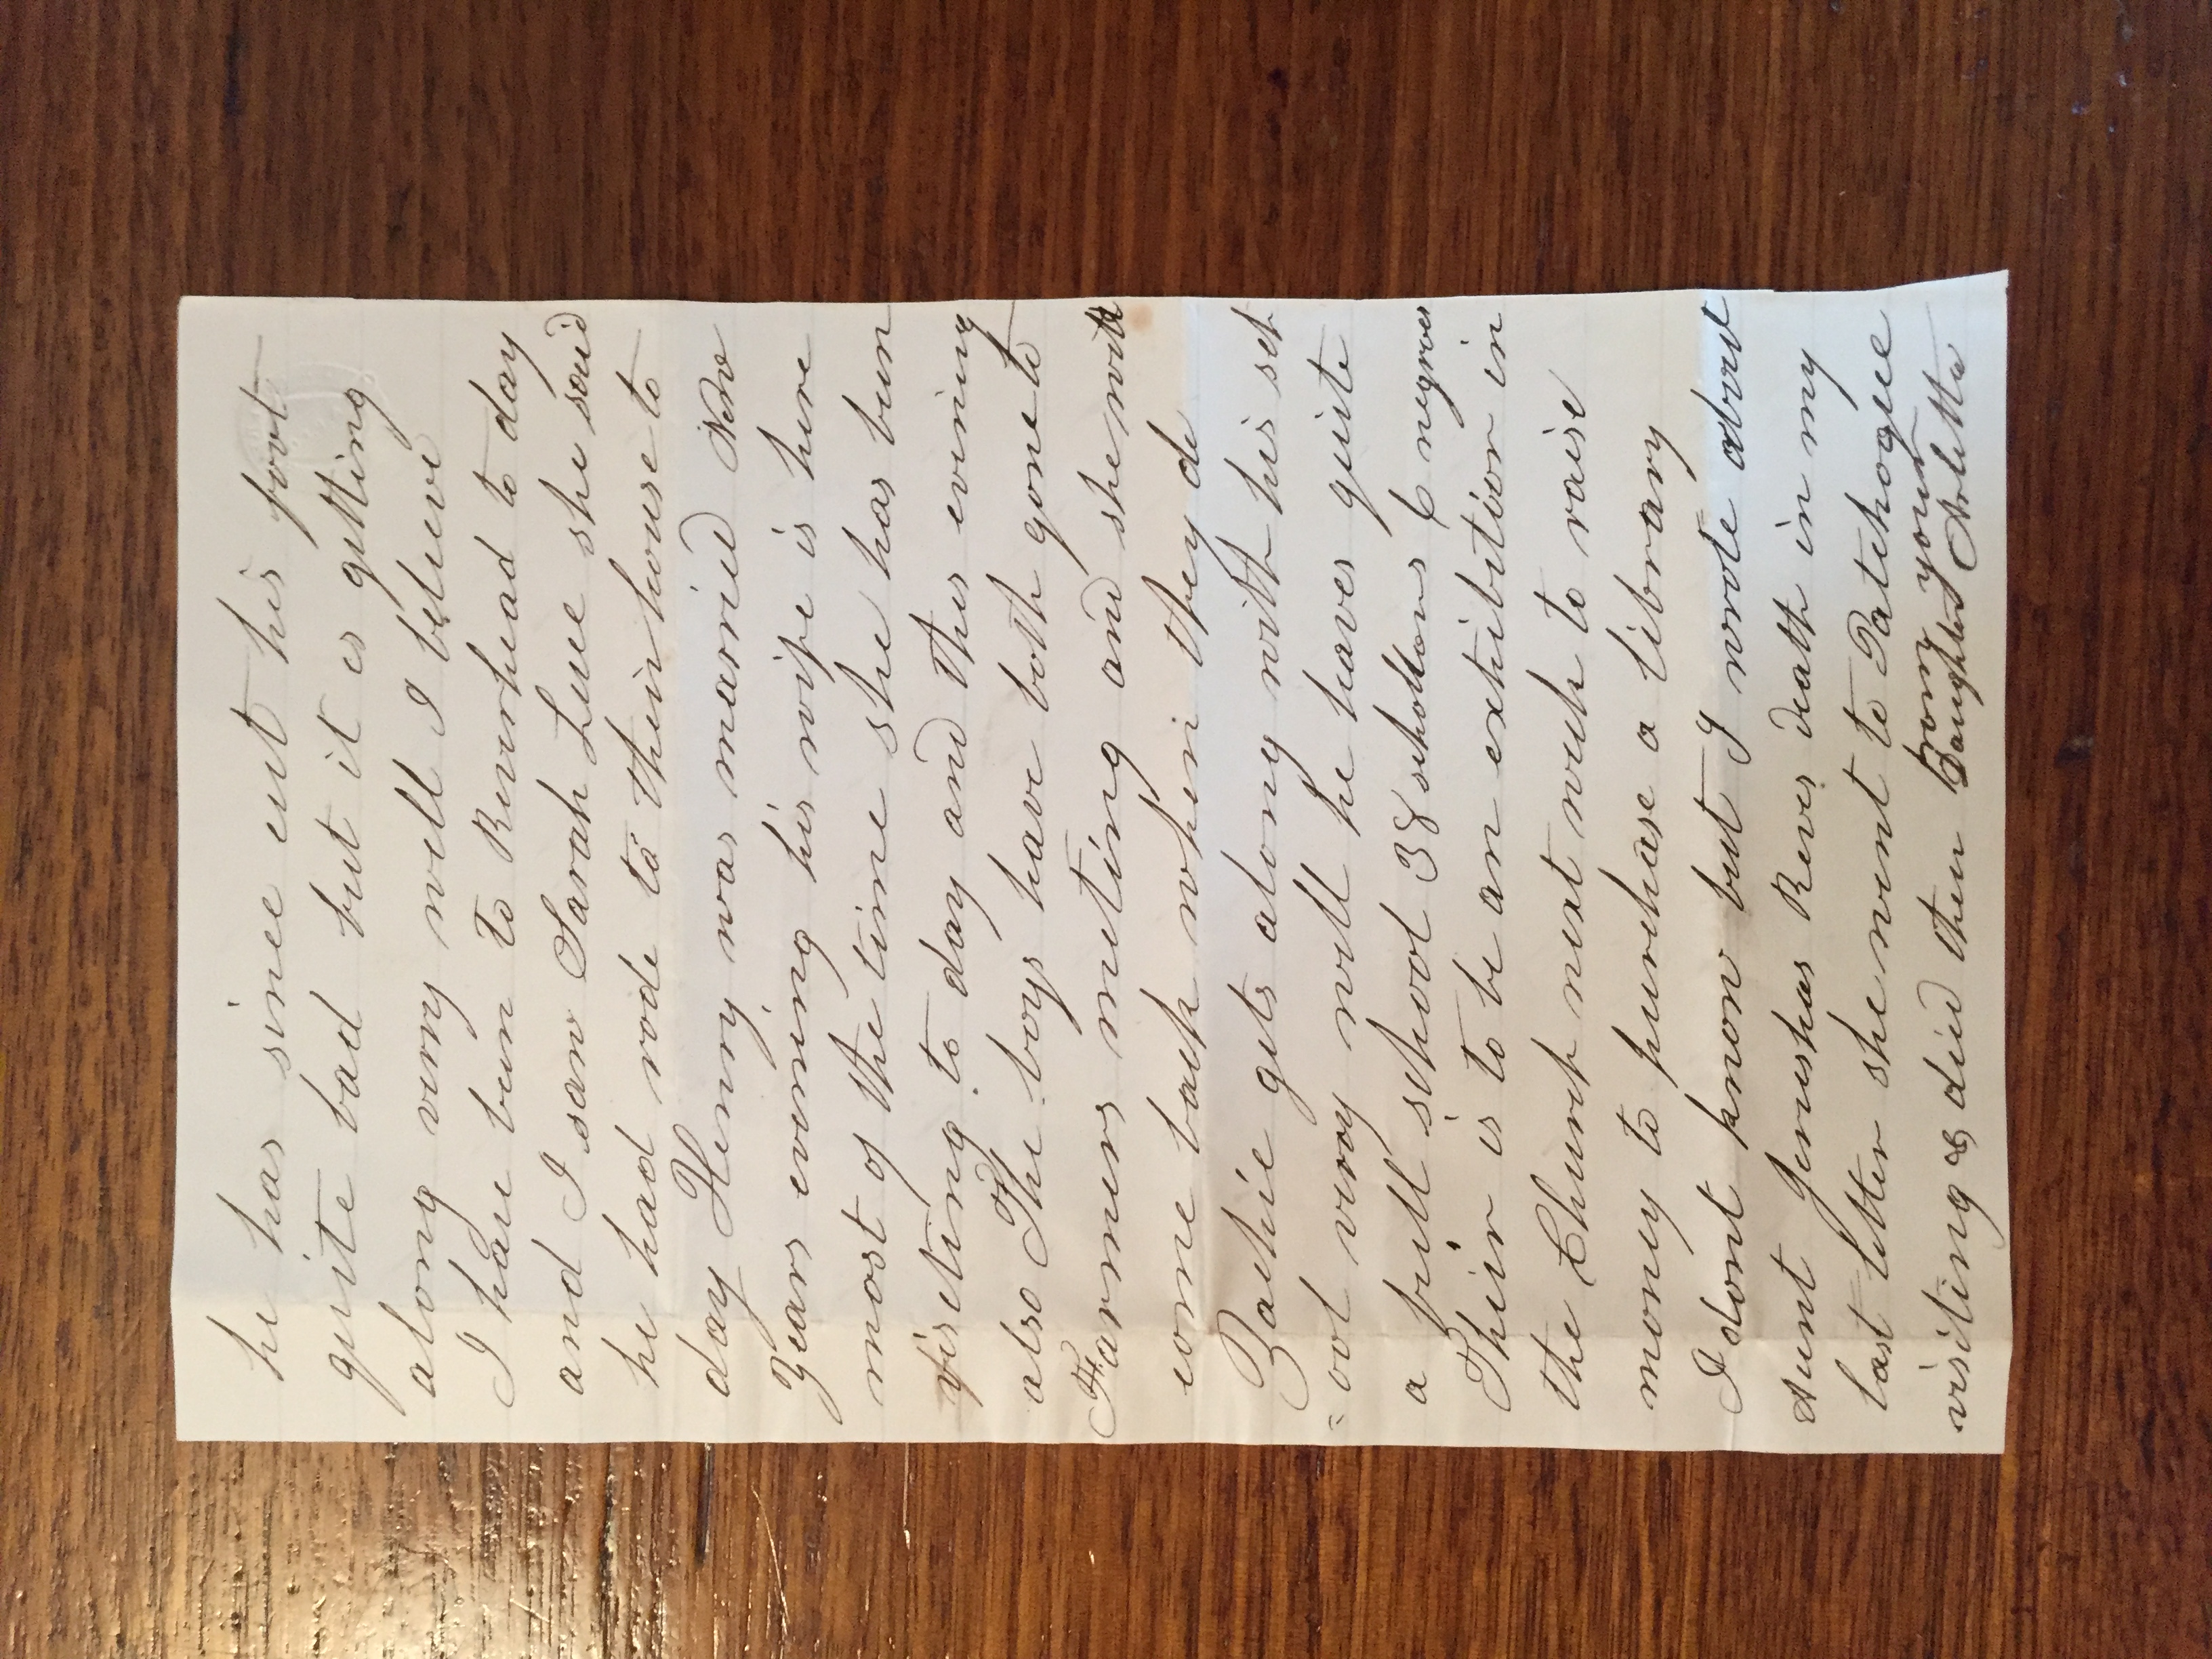 he has since cut his foot
quite bad but it is getting
along very well I believe
I have been to Riverhead to day
and I saw Sarah Luce she said
he had rode to their house to
day Henry was married New
Years evening his wife is here
most of the time she has been
visiting to day and this evening
also The boys have both gone to
Farmers meeting and she will
come back when they do
Zachie gets along with his sch
=ool very well he haves quite
a full school 38 schollars 6 negroes
Their is to be an exibition in
the Church next week to raise
money to purchase a library
I dont know but I wrote about
Aunt Jerushas Reves death in my
last letter she went to Patchogue
visiting & died then From your
Daughter Arletta